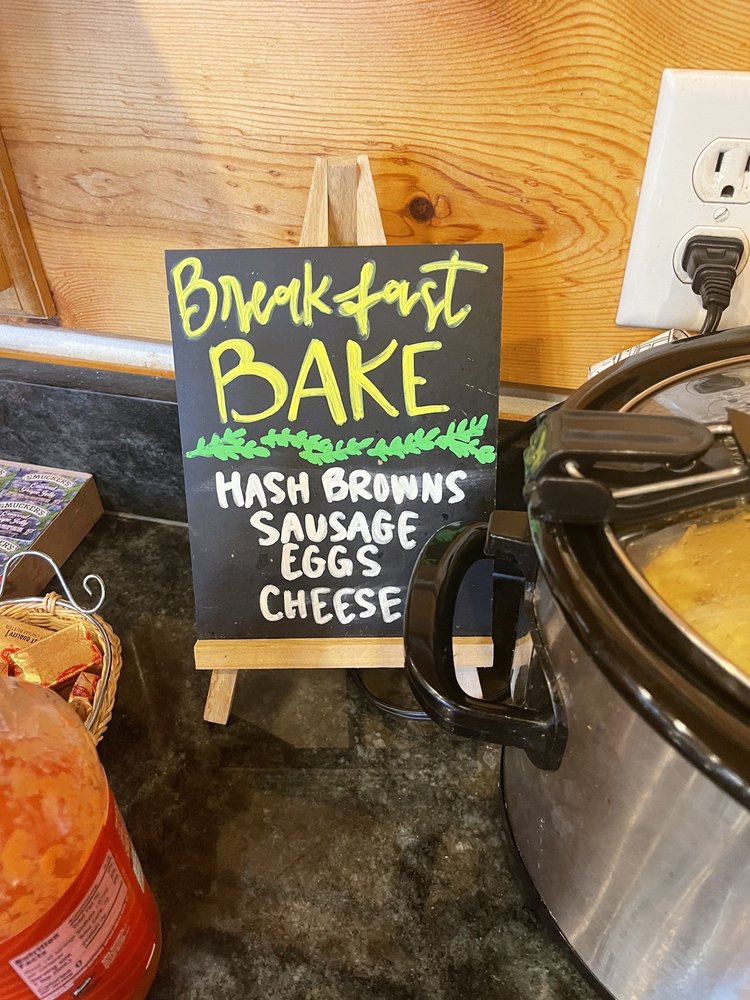 Breakfast
BAKE
HASH BROWNS
SAUSAGE
EGGS
CHEESE
SMUCKER'S
SMUCKER'S
Nutrition
Facts